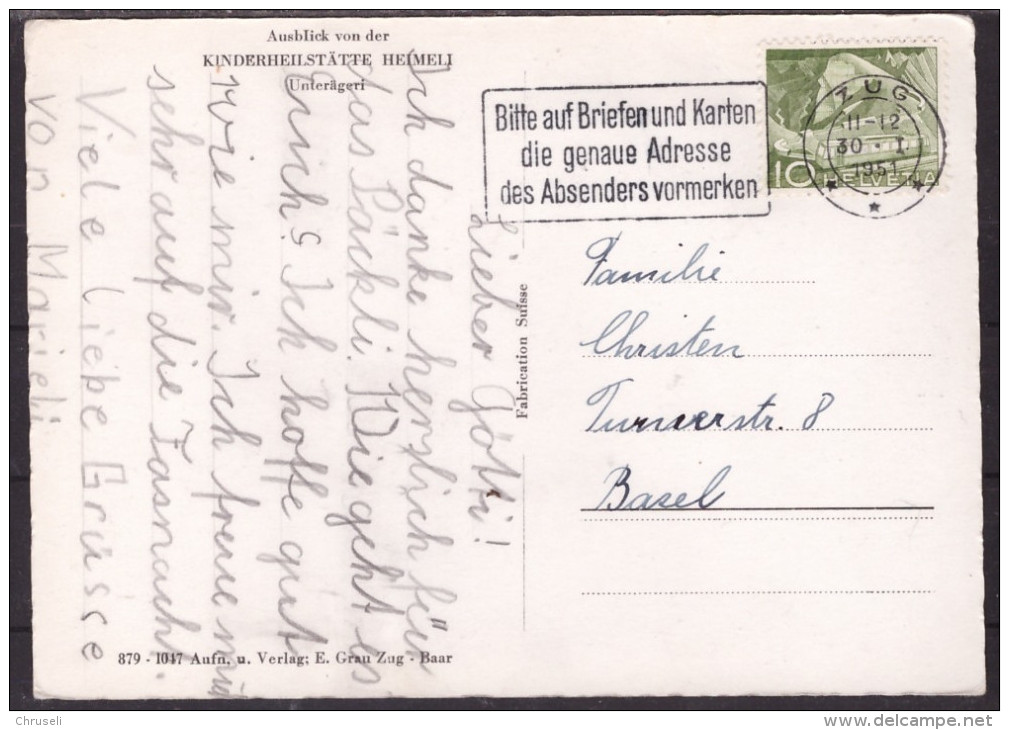 Ausblick von der
KINDERHEILSTÄTTE HEIMELI
Unterägeri
Lieber Götti!
Ich danke herzlich für
das Säckli. Wie geht es
Euch? Ich hoffe gut
wie mir. Ich freue mich
sehr auf die Fasnacht.
Viele liebe Grüsse
von Marieli
879 - 1047 Aufn. u. Verlag: E. Grau Zug - Baar
Fabrication Suisse
Bitte auf Briefen und Karten
die genaue Adresse
des Absenders vormerken
ZUG
11-12
30 · I.
1951
10 HELVETIA
Familie
Christen
Turnerstr. 8
Basel
Chruseli
www.delcampe.net